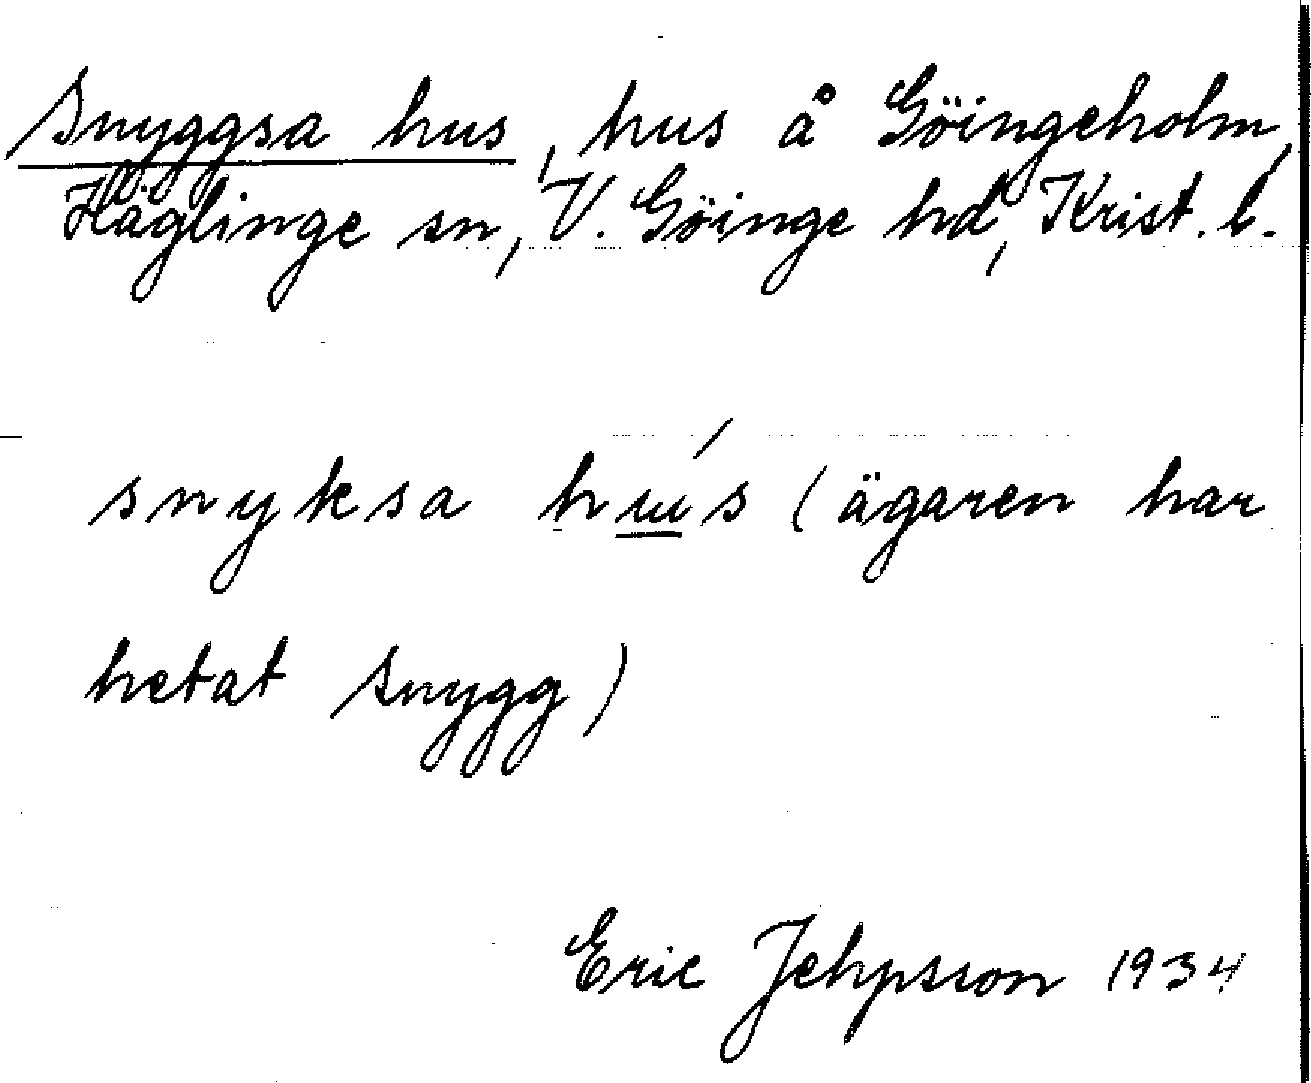 Snyggsa hus, hus å Göingeholm,
Häglinge sn, V. Göinge hd, Krist. l.
snyksa hu̲s (ägaren har
hetat Snygg)
Eric Jehpsson 1934